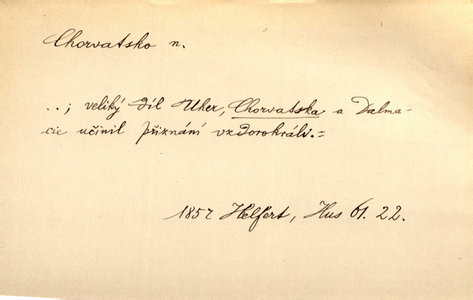 Chorvatsko n.
..; veliký díl Uher, Chorvatska a Dalma-
cie učinil přiznání vzdorokráli.=
1857 Helfert, Hus 61. 22.